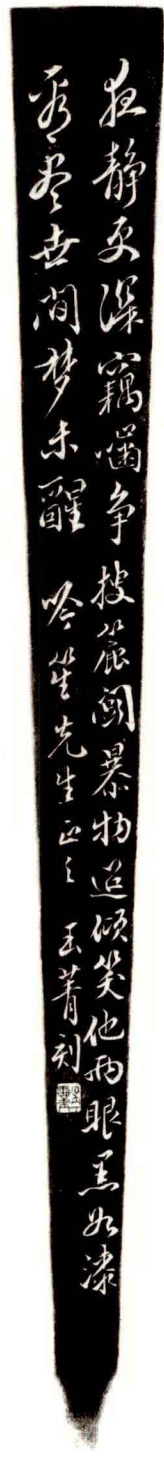 夜静更深窃啮争搜篋闹暴物迢倾笑他两眼黑如漆
看尽世间梦未醒
吟笙先生正之 玉菁刻